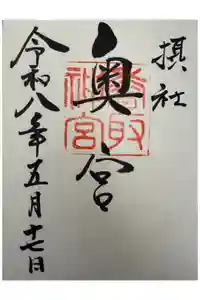 摂社
奥宮
香取
神宮
令和八年五月十七日